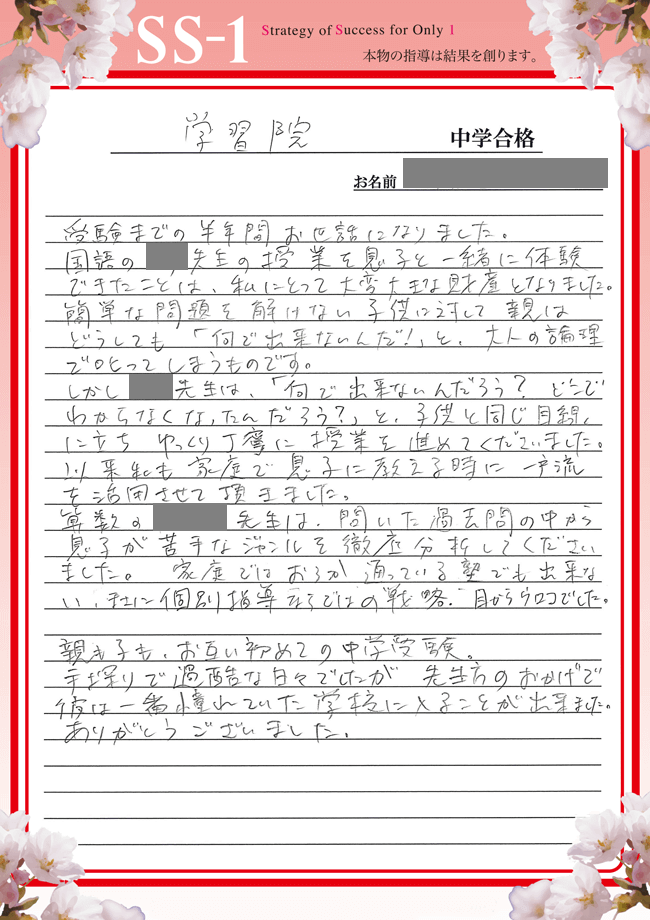 SS-1
Strategy of Success for Only 1
本物の指導は結果を創ります。
学習院 中学合格
お名前
受験までの半年間お世話になりました。
国語の 先生の授業を息子と一緒に体験
できたことは、私にとって大変大きな財産となりました。
簡単な問題を解けない子供に対して親は
どうしても「何で出来ないんだ!」と、大人の論理
で叱ってしまうものです。
しかし 先生は、「何で出来ないんだろう? どこで
わからなくなったんだろう?」と、子供と同じ目線
に立ち ゆっくり丁寧に授業を進めてくださいました。
以来私も家庭で息子に教える時に 流
を活用させて頂きました。
算数の 先生は、間いた過去問の中から
息子が苦手なジャンルを徹底分析してください
ました。 家庭ではおろか通っている塾でも出来な
い、まさに個別指導ならではの戦略。目からウロコでした。
親も子も、お互い初めての中学受験。
手探りで過酷な日々でしたが 先生方のおかげで
彼は一番憧れていた学校に入ることが出来ました。
ありがとうございました。